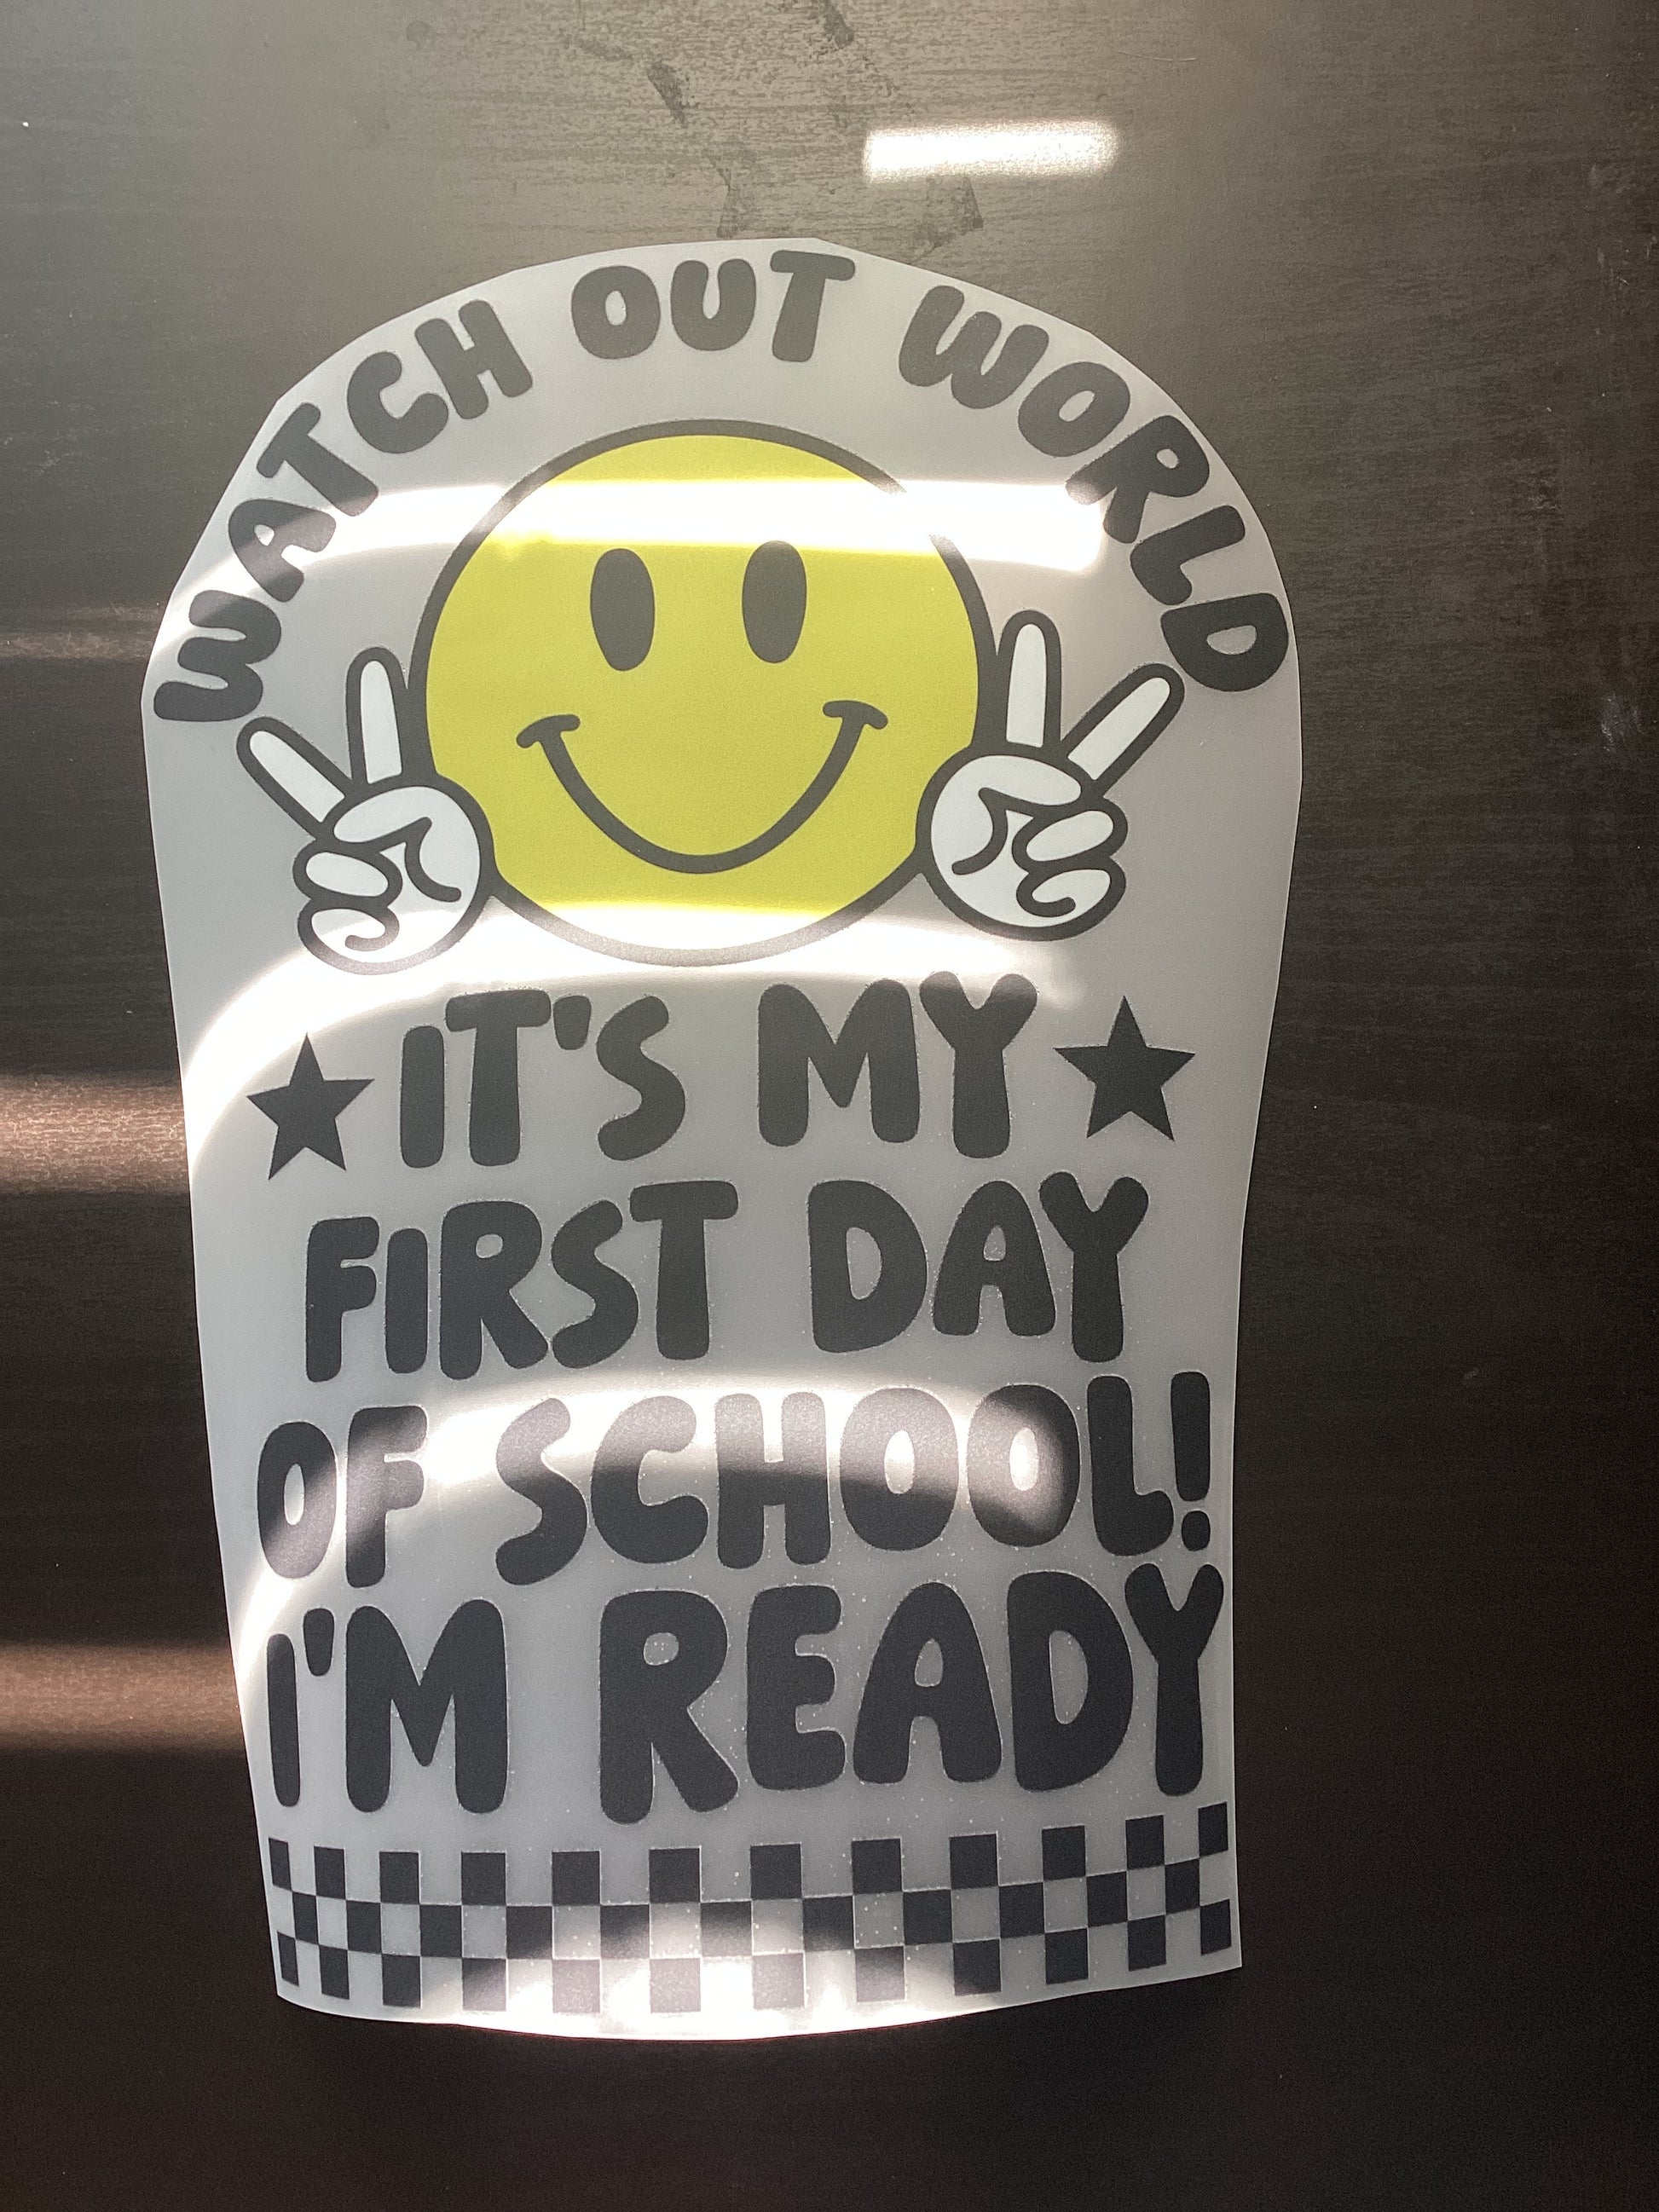 WATCH OUT WORLD
IT'S MY
FIRST DAY
OF SCHOOL!
I'M READY